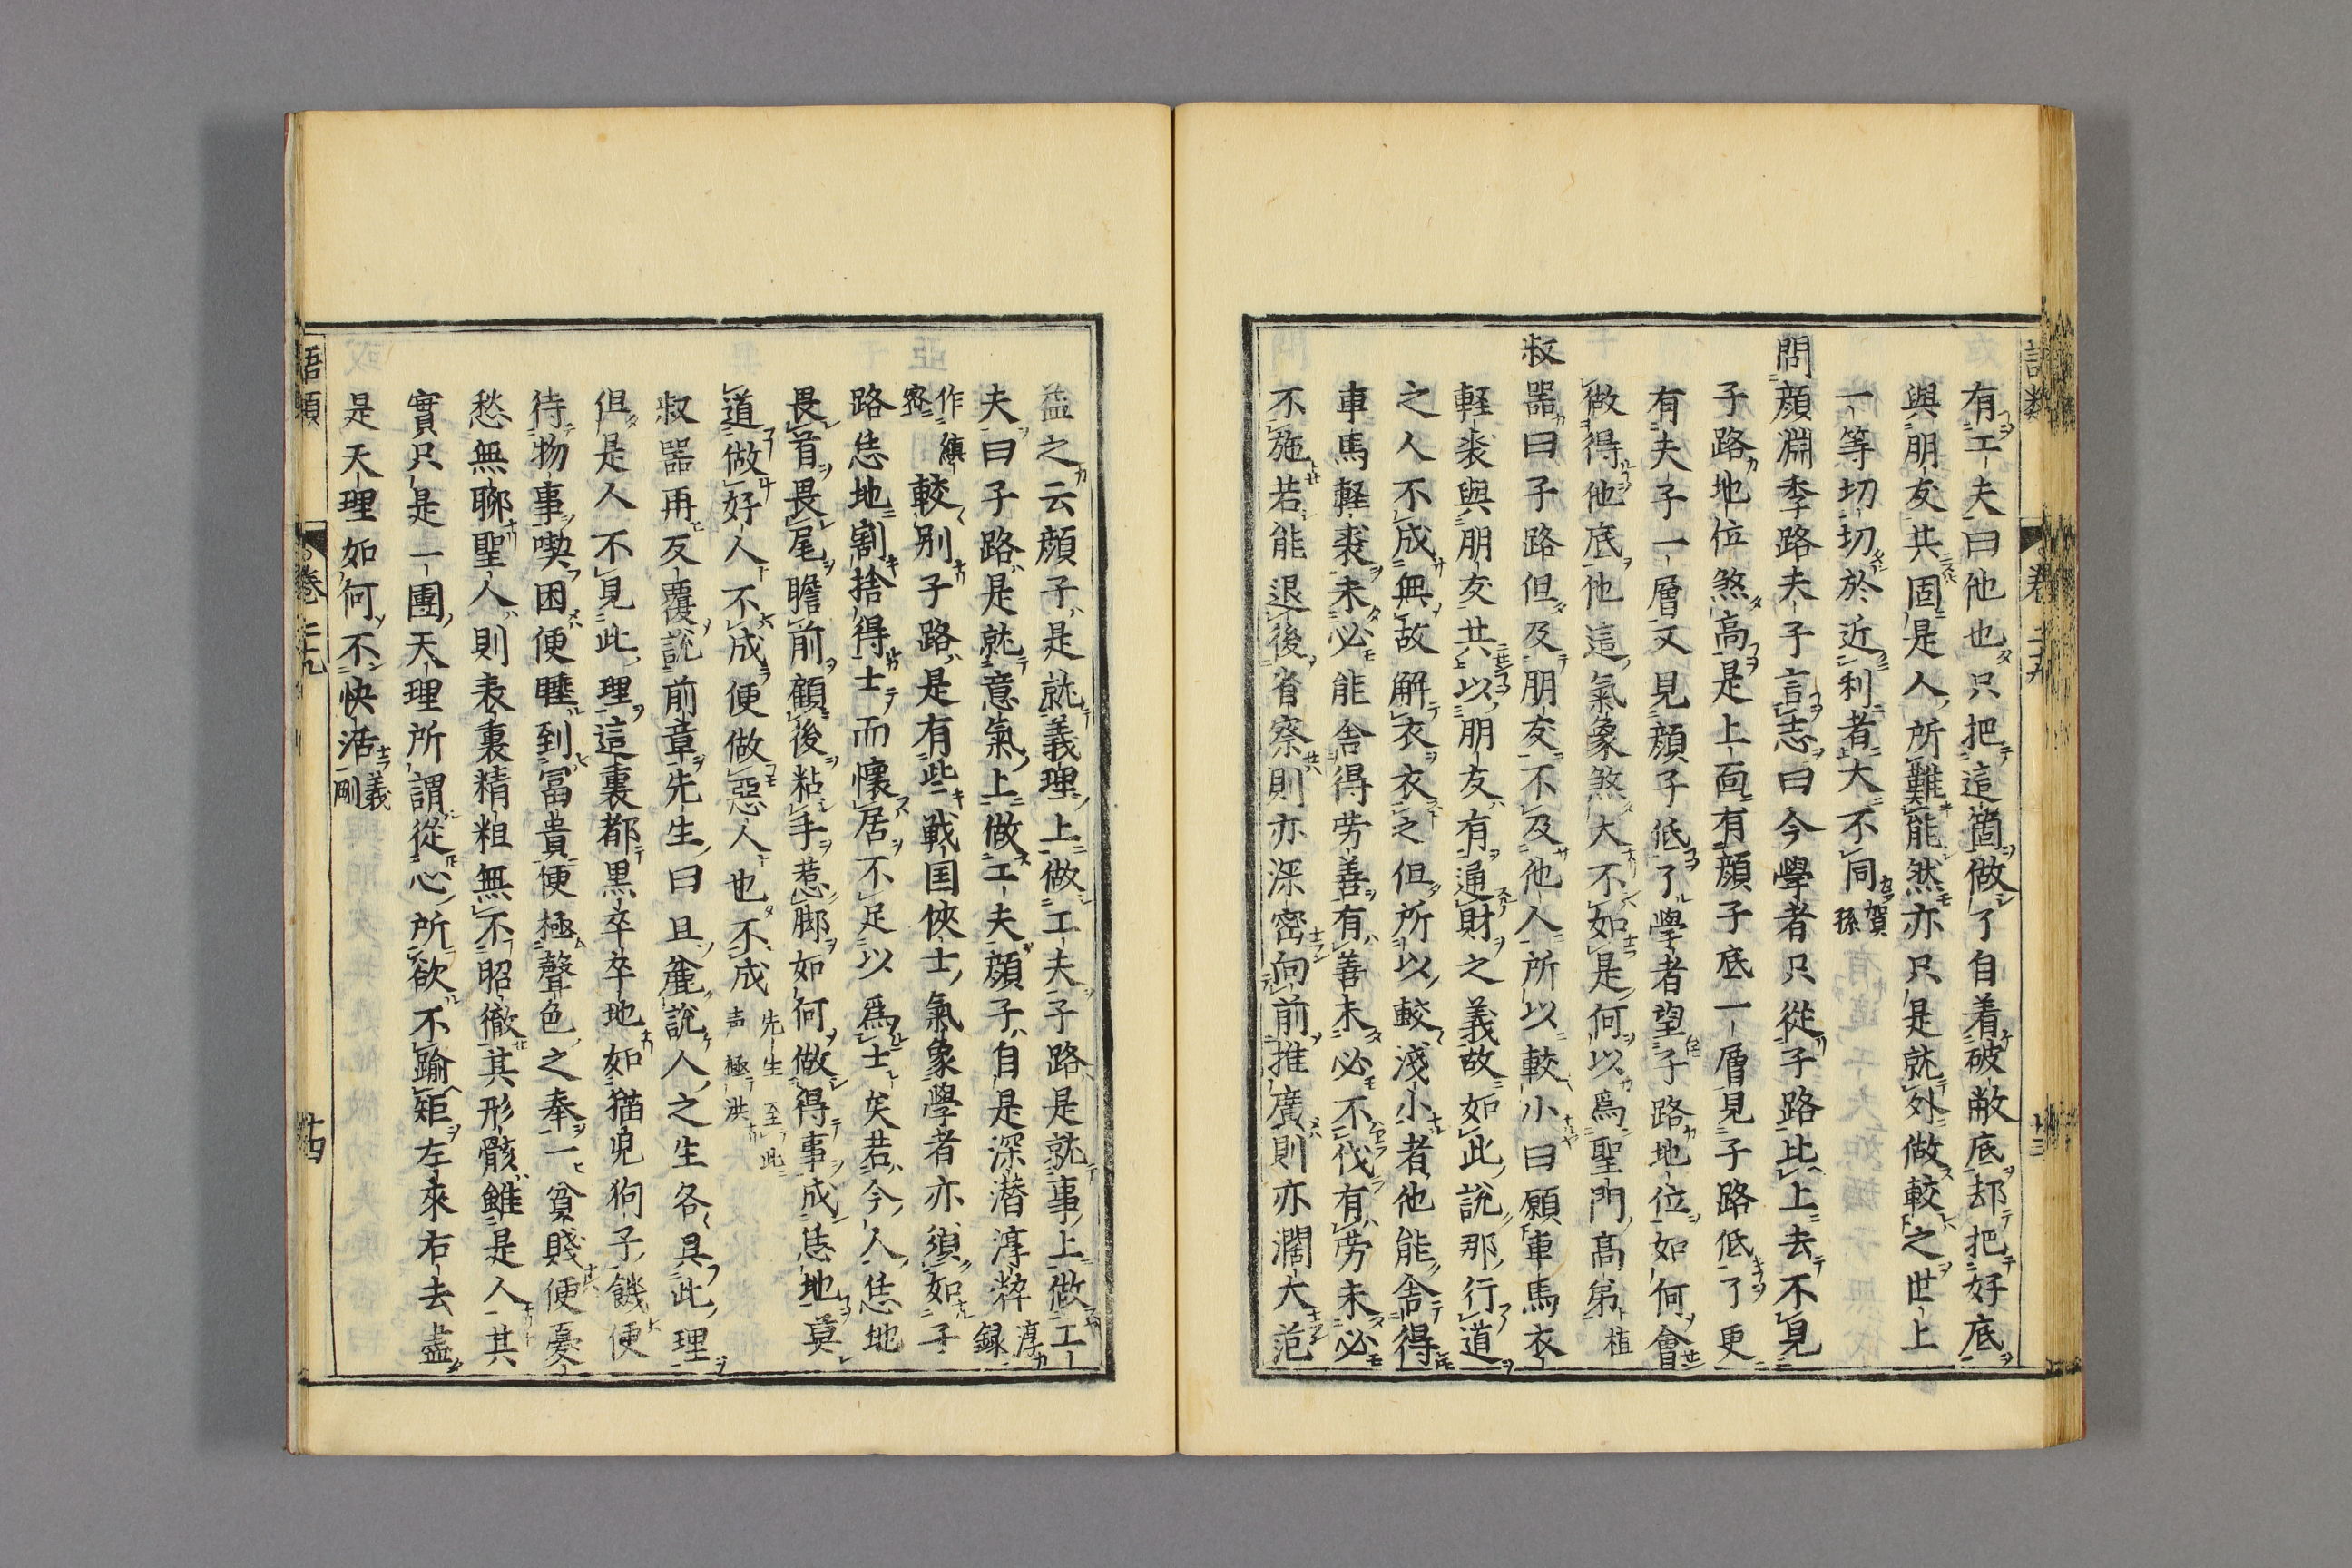 語類 卷二十九 十三
有工夫曰他也只把這箇做了自着破敝底却把好底
與朋友共固是人所難能然亦只是就外做較之世上
一等切切於近利者大不同賀孫
問顏淵季路夫子言志曰今學者只從子路比上去不見
子路地位煞高是上面有顏子底一層見子路低了更
有夫子一層又見顏子低了學者望子路地位如何會
做得他底他這氣象煞大不如是何以爲聖門高第植
叔器曰子路但及朋友不及他人所以較小曰願車馬衣
輕裘與朋友共以朋友有通財之義故如此說那行道
之人不成無故解衣衣之但所以較淺小者他能舍得
車馬輕裘未必能舍得勞善有善未必不伐有勞未必
不施若能退後省察則亦深密向前推廣則亦濶大范
益之云顏子是就義理上做工夫子路是就事上做工
夫曰子路是就意氣上做工夫顏子自是深潛淳粹淳錄
作縝密較别子路是有些戰国俠士氣象學者亦須如子
路恁地割捨得士而懷居不足以爲士矣若今人恁地
畏首畏尾瞻前顧後粘手惹脚如何做得事成恁地莫
道做好人不成便做惡人也不成先生至此声極洪
叔器再反覆說前章先生曰且麄說人之生各具此理
但是人不見此理這裏都黒卒卒地如猫兒狗子饑便
待物事喫困便睡到富貴便極聲色之奉一貧賤便憂
愁無聊聖人則表裏精粗無不昭徹其形骸雖是人其
實只是一團天理所謂從心所欲不踰矩左來右去盡
是天理如何不快活義剛
語類 卷二十九 十四